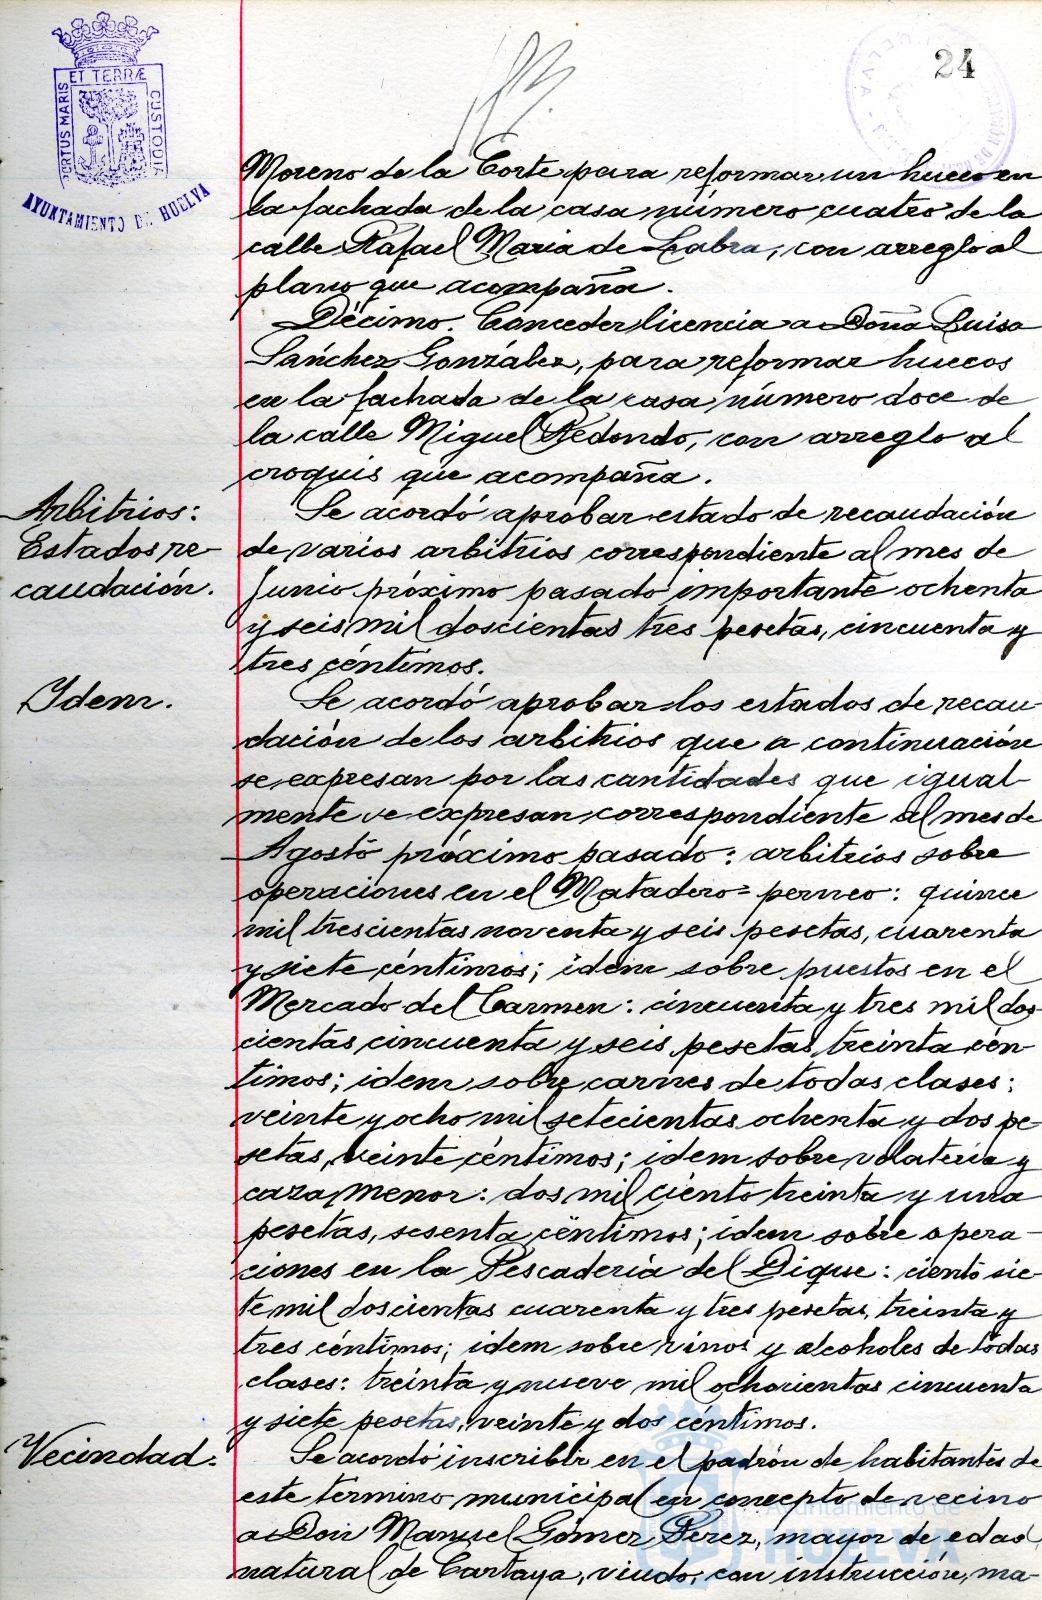 24
PORTUS MARIS
ET TERRÆ
CUSTODIA
AYUNTAMIENTO DE HUELVA
Moreno de la Corte para reformar un hueco en
la fachada de la casa número cuatro de la
calle Rafael Maria de Labra, con arreglo al
plano que acompaña.
Décimo. Conceder licencia a Doña Luisa
Sánchez González, para reformar huecos
en la fachada de la casa número doce de
la calle Miguel Redondo, con arreglo al
croquis que acompaña.
Arbitrios:
Estados re-
caudación.
Se acordó aprobar estado de recaudación
de varios arbitrios correspondiente al mes de
Junio próximo pasado importante ochenta
y seis mil doscientas tres pesetas, cincuenta y
tres céntimos.
Idem.
Se acordó aprobar los estados de recau-
dación de los arbitrios que a continuación
se expresan por las cantidades que igual-
mente se expresan correspondiente al mes de
Agosto próximo pasado: arbitrios sobre
operaciones en el Matadero= perneo: quince
mil trescientas noventa y seis pesetas, cuarenta
y siete céntimos; idem sobre puestos en el
Mercado del Carmen: cincuenta y tres mil dos-
cientas cincuenta y seis pesetas, treinta cén-
timos; idem sobre carnes de todas clases:
veinte y ocho mil setecientas ochenta y dos pe-
setas, veinte céntimos; idem sobre volatería y
caza menor: dos mil ciento treinta y una
pesetas, sesenta céntimos; idem sobre opera-
ciones en la Pescadería del Dique: ciento sie-
te mil doscientas cuarenta y tres pesetas, treinta y
tres céntimos; idem sobre vinos y alcoholes de todas
clases: treinta y nueve mil ochocientas cincuenta
y siete pesetas, veinte y dos céntimos.
Vecindad.
Se acordó inscribir en el padrón de habitantes de
este término municipal en concepto de vecino
a Don Manuel Gómez Pérez, mayor de edad,
natural de Cartaya, viudo, con instrucción, ma-
Ayuntamiento de
HUELVA